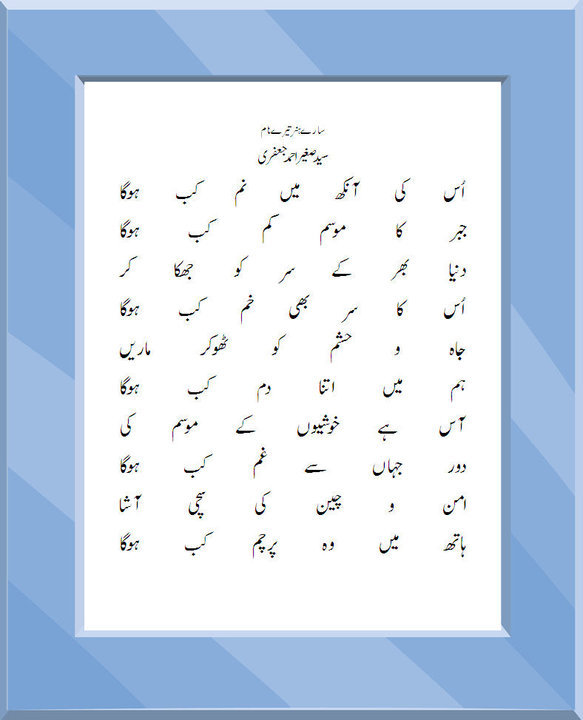 سارے ہنر تیرے نام
سید صغیر احمد جعفری
اُس کی آنکھ میں نم کب ہوگا
جبر کا موسم کم کب ہوگا
دنیا بھر کے سر کو جھکا کر
اُس کا سر بھی خم کب ہوگا
جاہ و حشم کو ٹھوکر ماریں
ہم میں اتنا دم کب ہوگا
آس ہے خوشیوں کے موسم کی
دور جہاں سے غم کب ہوگا
امن و چین کی سچی آشا
ہاتھ میں وہ پرچم کب ہوگا